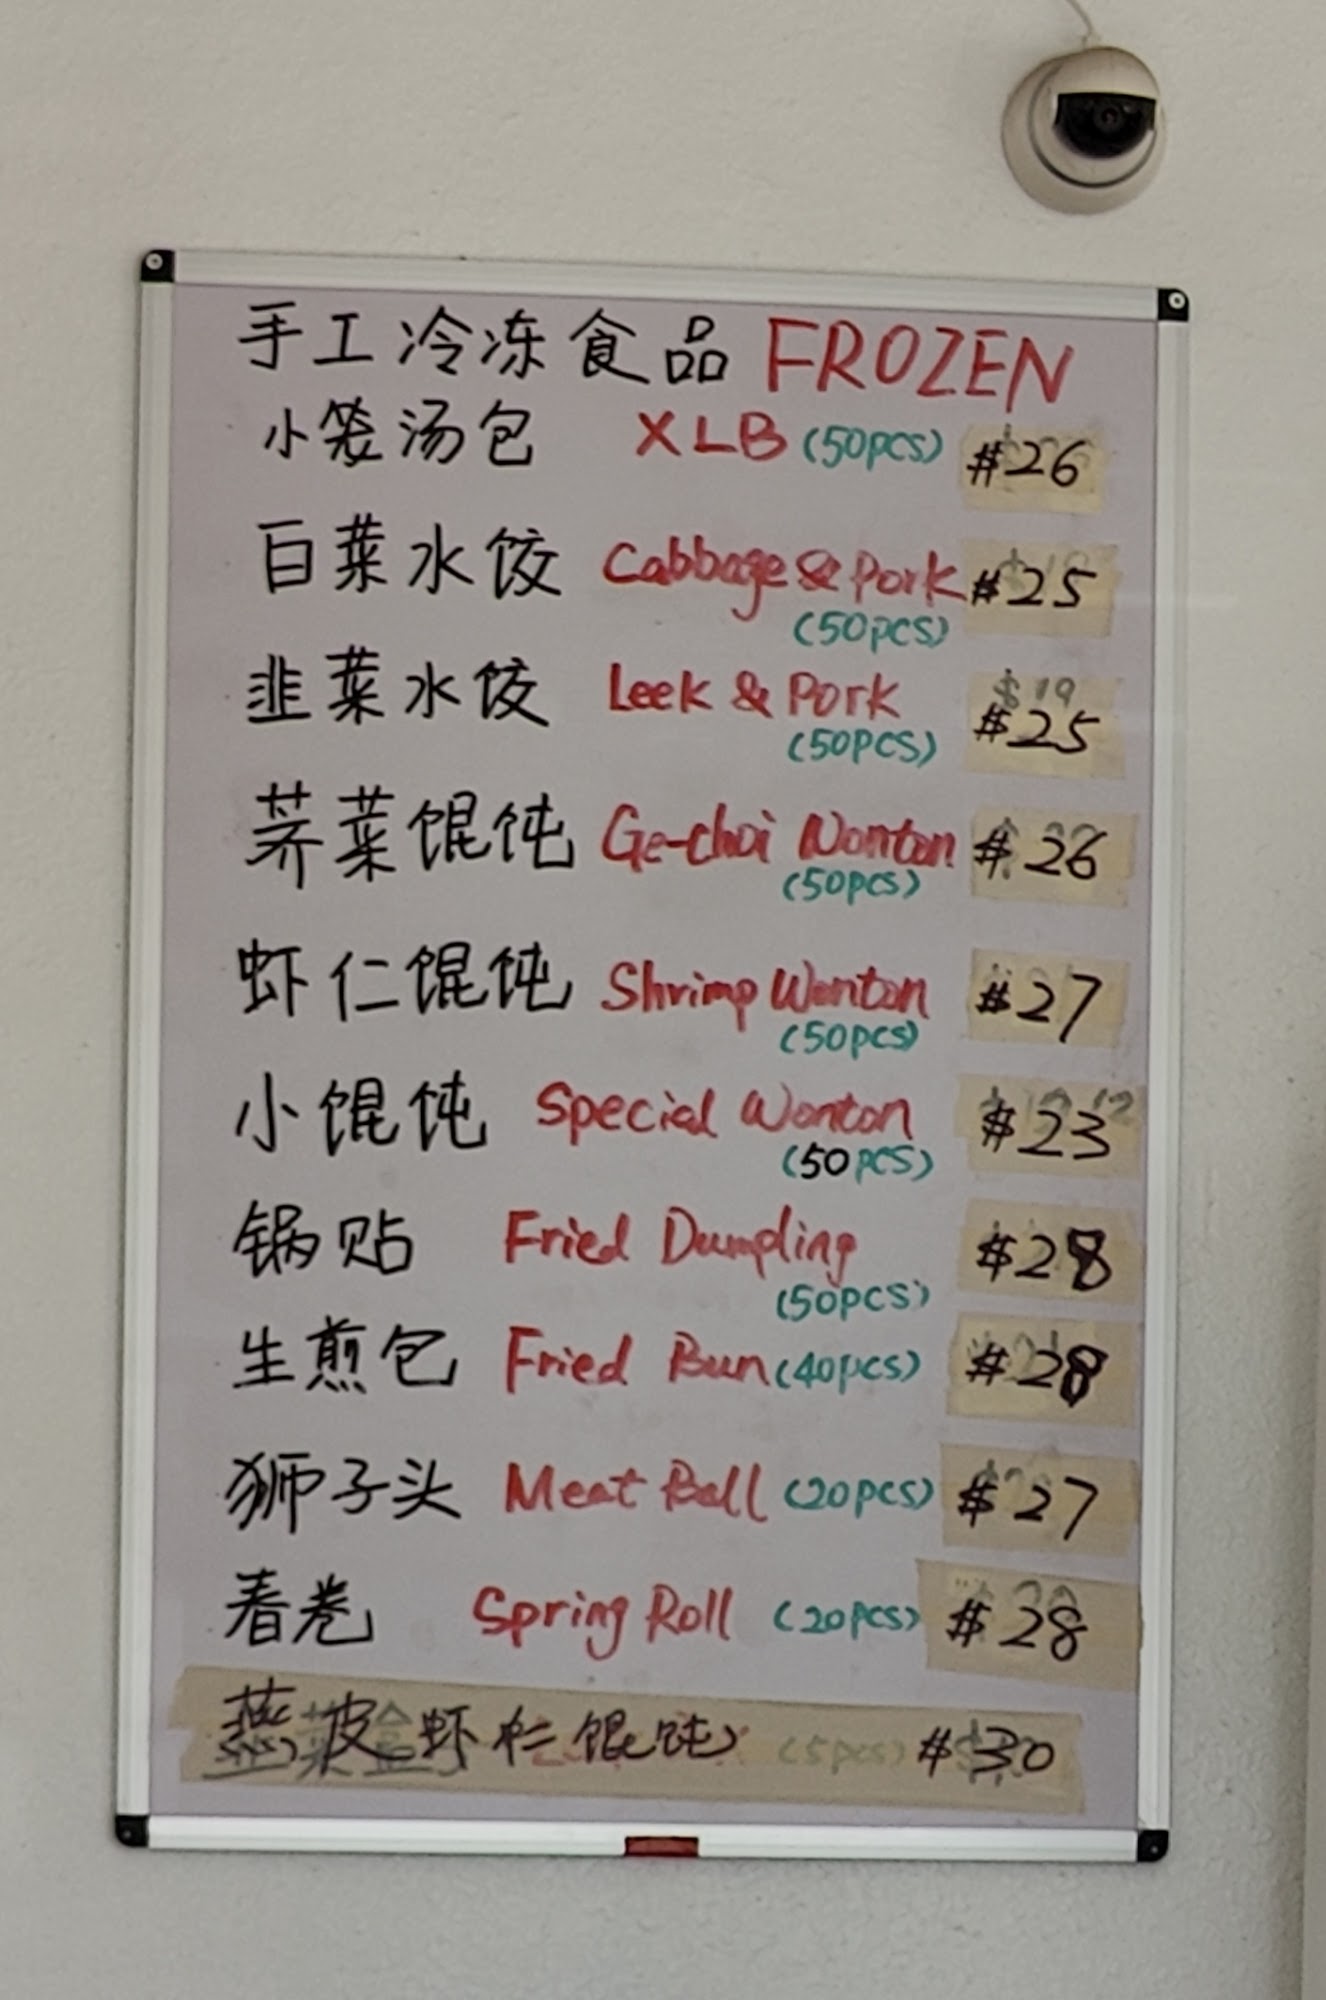 手工冷冻食品 FROZEN
小笼汤包 XLB (50pcs) $26
白菜水饺 Cabbage & Pork $25
(50pcs)
韭菜水饺 Leek & Pork $19
(50pcs) $25
荠菜馄饨 Ge-choi Wonton $26
(50pcs)
虾仁馄饨 Shrimp Wonton $27
(50pcs)
小馄饨 Special Wonton $23
(50pcs)
锅贴 Fried Dumpling $28
(50pcs)
生煎包 Fried Bun (40pcs) $28
狮子头 Meat Ball (20pcs) $27
春卷 Spring Roll (20pcs) $28
燕皮虾仁馄饨 (5pcs) $30